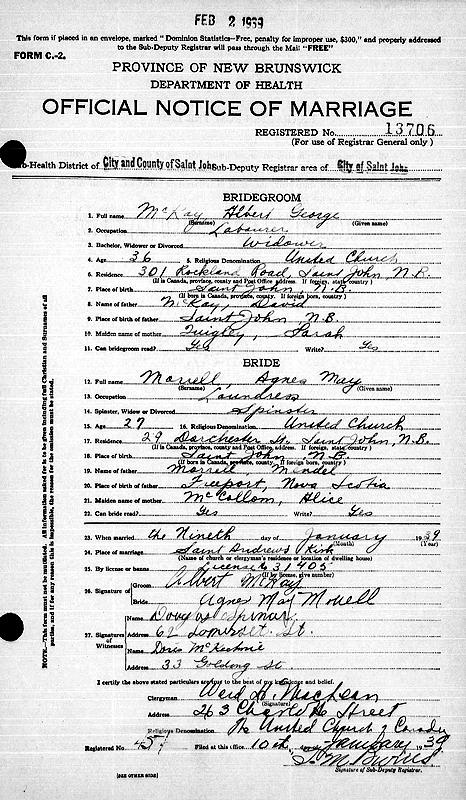 FEB 2 1939
This form if placed in an envelope, marked "Dominion Statistics—Free, penalty for improper use, $300," and properly addressed
to the Sub-Deputy Registrar will pass through the Mail "FREE"
FORM C.-2.
PROVINCE OF NEW BRUNSWICK
DEPARTMENT OF HEALTH
OFFICIAL NOTICE OF MARRIAGE
REGISTERED No. 13706
(For use of Registrar General only)
Sub-Health District of City and County of Saint John Sub-Deputy Registrar area of City of Saint John
BRIDEGROOM
1. Full name McKay Albert George
(Surname) (Given name)
2. Occupation Labourer
3. Bachelor, Widower or Divorced Widower
4. Age 36 5. Religious Denomination United Church
6. Residence 301 Rockland Road, Saint John N.B.
(If in Canada, province, county and Post Office address. If foreign, state country)
7. Place of birth Saint John N.B.
(If born in Canada, province, county. If foreign born, country)
8. Name of father McKay, David
9. Place of birth of father Saint John N.B.
10. Maiden name of mother Quigley, Sarah
11. Can bridegroom read? Yes Write? Yes
BRIDE
12. Full name Morrell, Agnes May
(Surname) (Given name)
13. Occupation Laundress
14. Spinster, Widow or Divorced Spinster
15. Age 27 16. Religious Denomination United Church
17. Residence 29 Dorchester St. Saint John, N.B.
(If in Canada, province, county and Post Office address. If foreign, state country)
18. Place of birth Saint John N.B.
(If born in Canada, province, county. If foreign born, country)
19. Name of father Morrell
20. Place of birth of father Freeport, Nova Scotia
21. Maiden name of mother McCollom, Alice
22. Can bride read? Yes Write? Yes
23. When married the Nineth day of January 1939
(Month) (Year)
24. Place of marriage Saint Andrews Kirk
(Name of church or clergyman's residence or location of dwelling house)
25. By license or banns License 31405
(If by license, give number)
26. Signature of Groom Albert McKay
Bride Agnes May Morrell
27. Signature of Witnesses
Name Douglas
Address 62 Somerset St.
Name Doris McKechnie
Address 33 Golding St
I certify the above stated particulars are true to the best of my knowledge and belief.
Clergyman MacLean
(Signature)
Address 263 Charlotte Street
Religious Denomination The United Church of Canada
Registered No. 457 Filed at this office 10th day January 1939
Signature of Sub-Deputy Registrar.
(SEE OTHER SIDE)
NOTE.—This form must not be mutilated. All information asked for to be given including full Christian and Surnames of all
persons named. If this is impossible, the reason for the omission must be stated.